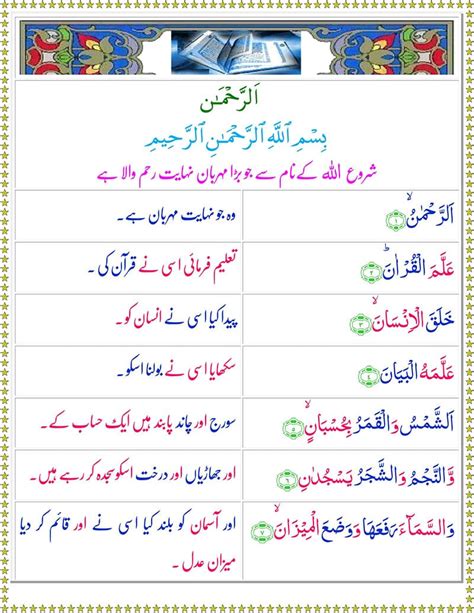 اَلرَّحْمٰن
بِسْمِ اللّٰهِ الرَّحْمٰنِ الرَّحِيْمِ
شروع اللہ کے نام سے جو بڑا مہربان نہایت رحم والا ہے
اَلرَّحْمٰنُۙ ۱
وہ جو نہایت مہربان ہے۔
عَلَّمَ الْقُرْاٰنَؕ ۲
تعلیم فرمائی اسی نے قرآن کی۔
خَلَقَ الْاِنْسَانَۙ ۳
پیدا کیا اسی نے انسان کو۔
عَلَّمَهُ الْبَيَانَ ۴
سکھایا اسی نے بولنا اسکو۔
اَلشَّمْسُ وَالْقَمَرُ بِحُسْبَانٍۙ ۵
سورج اور چاند پابند ہیں ایک حساب کے۔
وَّالنَّجْمُ وَالشَّجَرُ يَسْجُدٰنِ ۶
اور جھاڑیاں اور درخت اسکو سجدہ کر رہے ہیں۔
وَالسَّمَآءَ رَفَعَهَا وَوَضَعَ الْمِيْزَانَۙ ۷
اور آسمان کو بلند کیا اسی نے اور قائم کر دیا
میزان عدل۔